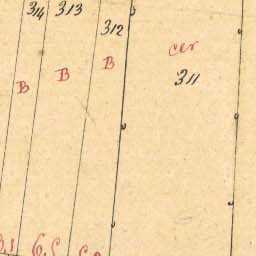 314 313
312
cer
311
B B B